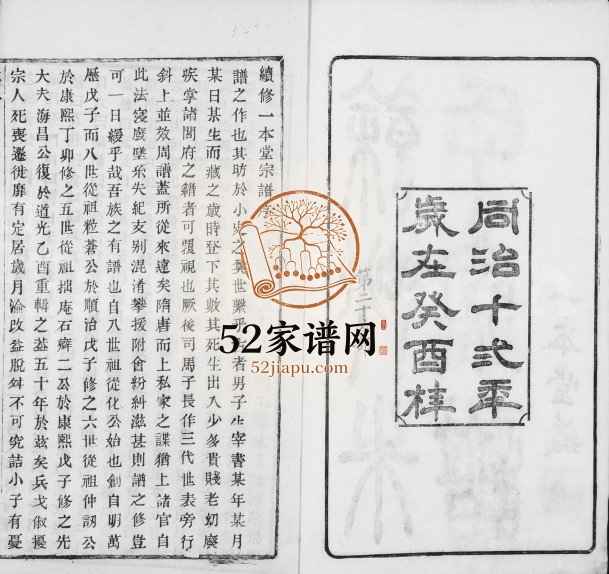 同治十弍年
歲在癸酉桂
續修一本堂宗譜
譜之作也其昉於小史之奠世繫乎 者男子生宰書某年某月
某日某生而藏之歲時登下其數其死生出入少多貴賤老幼廢
疾掌諸閭府之籍者可覆視也厥後司馬子長作三代世表旁行
斜上並效周譜蓋所從來遠矣隋唐而上私家之諜猶上諸官自
此法寖廢墜系失紀支别混淆攀援附會紛糾滋甚則譜之修豈
可一日緩乎哉吾族之有譜也自八世祖從化公始也創自明萬
歷戊子而八世從祖粒蒼公於順治戊子修之六世從祖仲訒公
於康熙丁卯修之五世從祖拙庵石癖二公於康熙戊子修之先
大夫海昌公復於道光乙酉重輯之蓋五十年於兹矣兵戈俶擾
宗人死喪遷徙靡有定居歲月淪改益脱舛不可究詰小子有憂
第二十
52家谱网
52jiapu.com